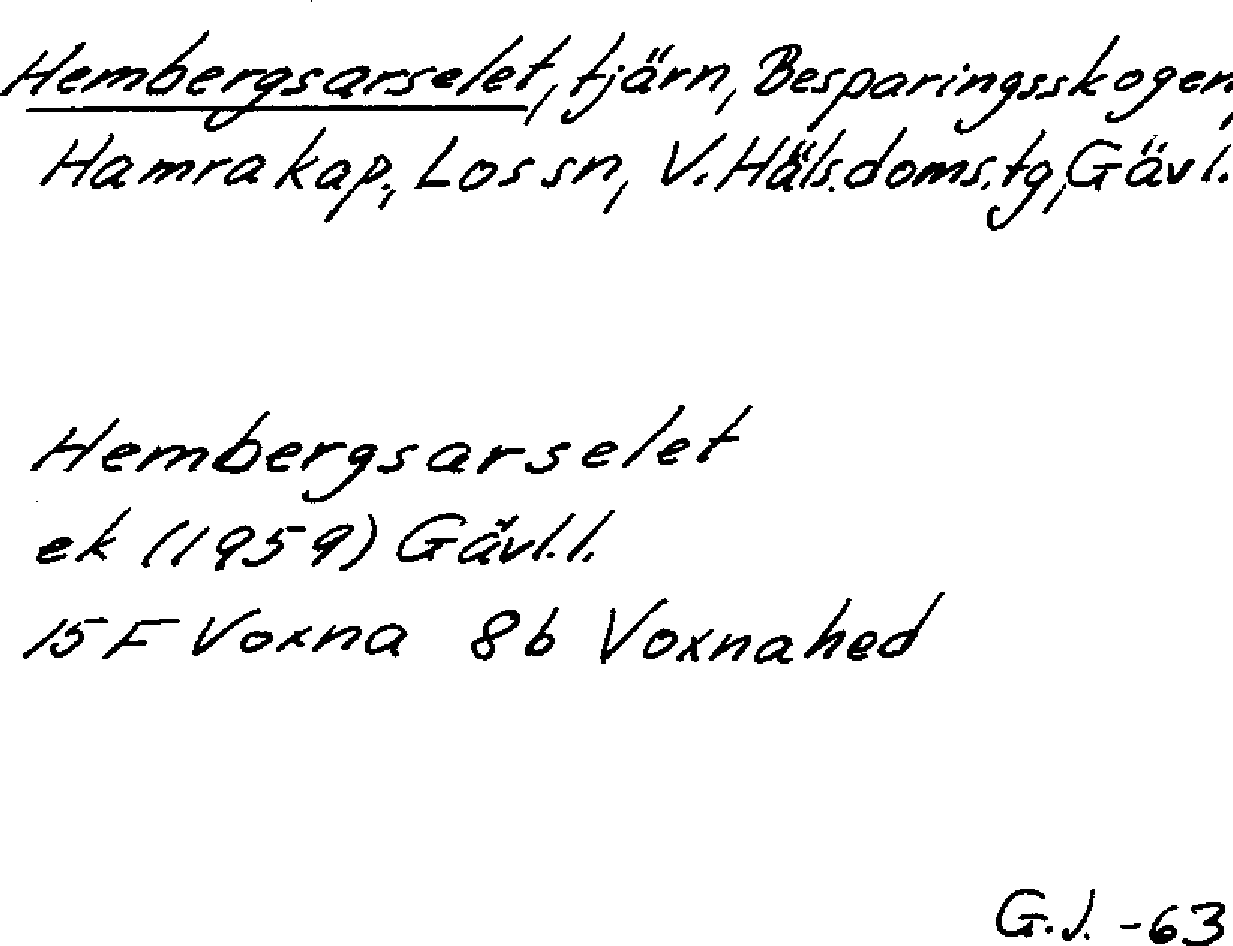 Hembergsarselet, tjärn, Besparingsskogen,
Hamra kap., Los sn, V. Häls. doms. tg, Gävl.
Hembergsarselet
ek (1959) Gävl.l.
15 F Voxna 8b Voxnahed
G.J. -63